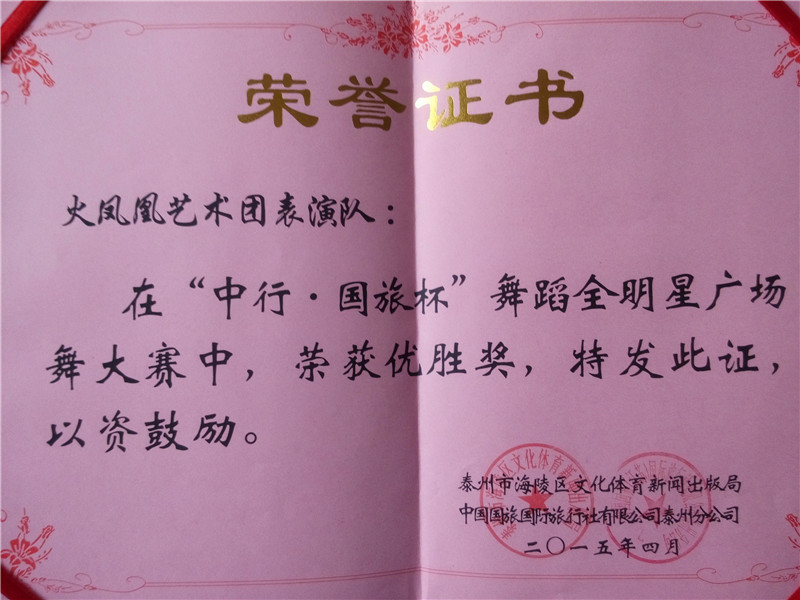 荣誉证书
火凤凰艺术团表演队：
在“中行·国旅杯”舞蹈全明星广场
舞大赛中，荣获优胜奖，特发此证，
以资鼓励。
泰州市海陵区文化体育新闻出版局
中国国旅国际旅行社有限公司泰州分公司
二〇一五年四月